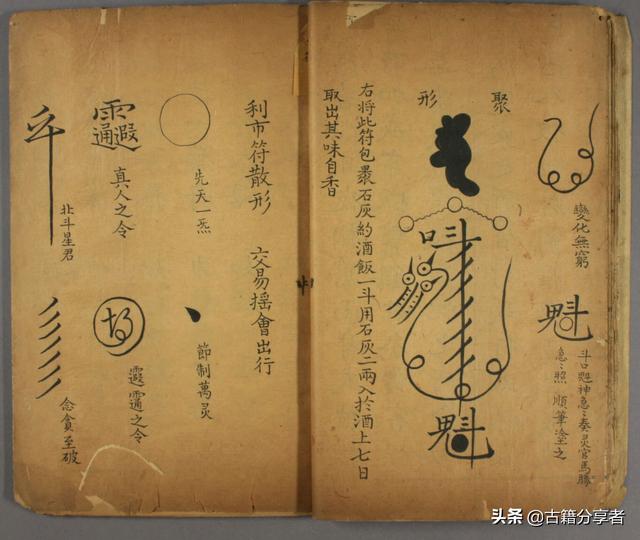 變化無窮
魁
斗口魁神急々奏灵官馬勝
急々照 順筆塗之
聚形
右将此符包裹石灰約酒飯一斗用石灰二兩入於酒上七日
取出其味自香
利市符散形 交易摇會出行
先天一炁
節制萬灵
真人之令
霞靈之令
北斗星君
念貪至破
头条 @古籍分享者